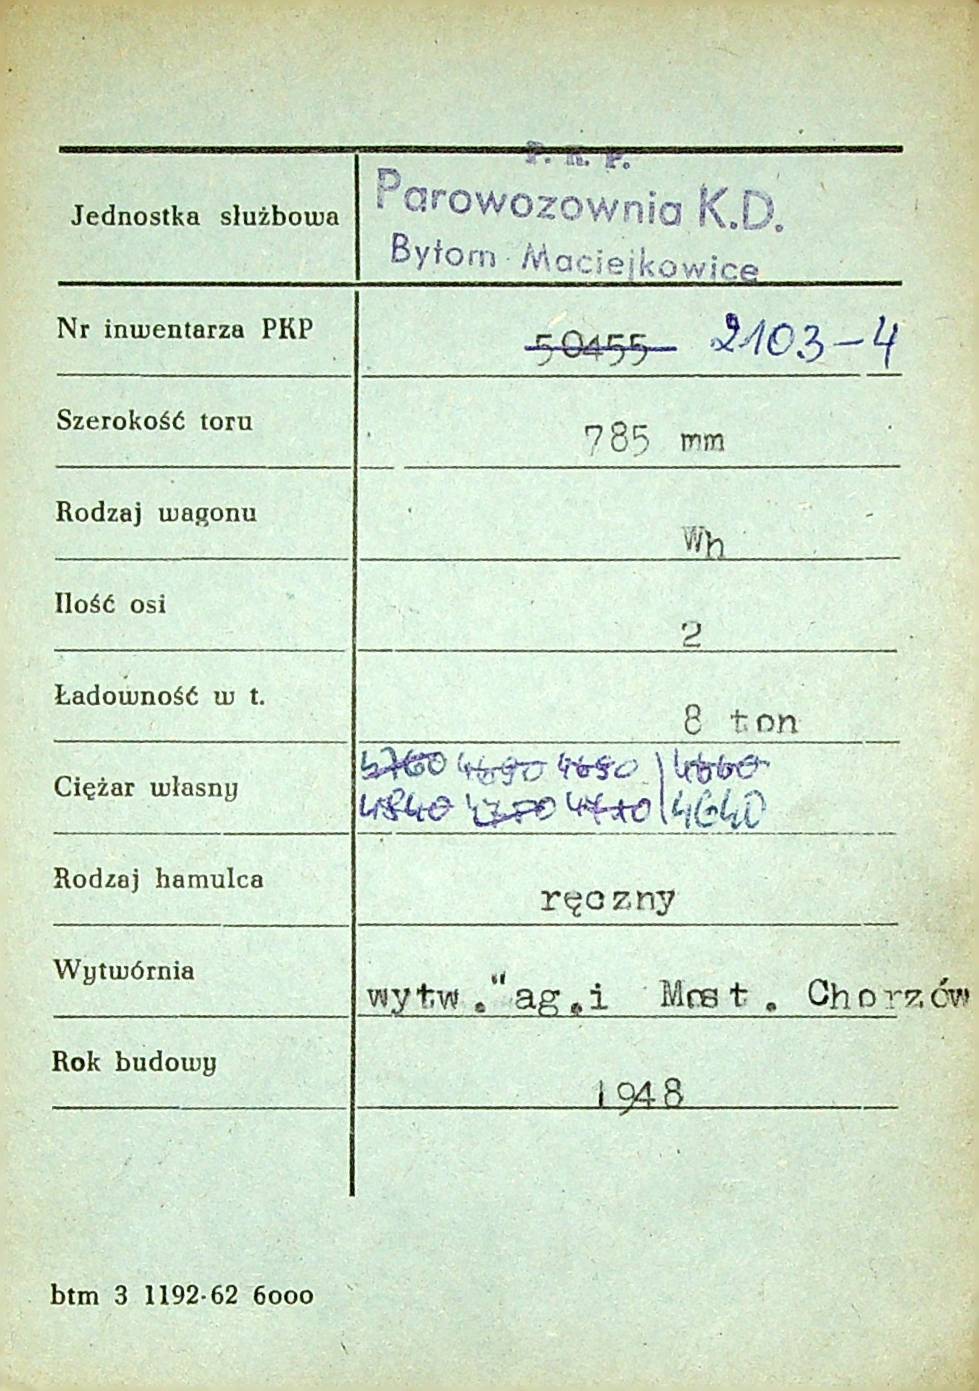 Jednostka służbowa
P. K. P.
Parowozownia K.D.
Bytom Maciejkowice
Nr inwentarza PKP 50455 2103-4
Szerokość toru 785 mm
Rodzaj wagonu Wh
Ilość osi 2
Ładowność w t. 8 ton
Ciężar własny 4760 4690 4650 4660
4840 4770 4640
Rodzaj hamulca ręczny
Wytwórnia wytw."ag.i Most. Chorzów
Rok budowy 1948
btm 3 1192-62 6000